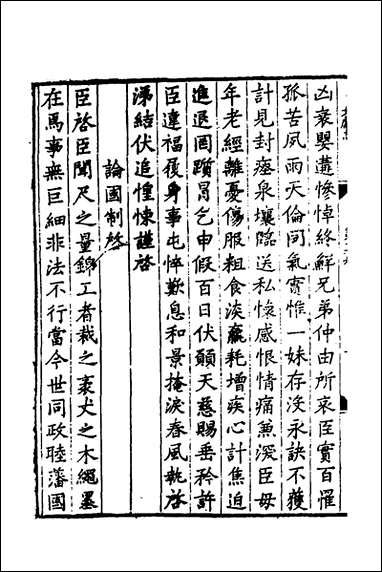 凶衰嬰遘慘悼終鮮兄弟仲由所哀臣實百罹
孤苦夙雨天倫同氣實惟一妹存没永訣不獲
計見封瘞泉壤臨送私懷感恨情痛兼深臣母
年老經離憂傷服粗食淡羸耗増疾心計焦迫
進退罔躓冒乞申假百日伏願天慈賜垂矜許
臣違福履身事屯悴歎息和景掩淚春風執啓
涕結伏追惶悚謹啓
論國制啓
臣啓臣聞尺之量錦工者裁之袤丈之木繩墨
在焉事無巨細非法不行當今世同政睦藩國